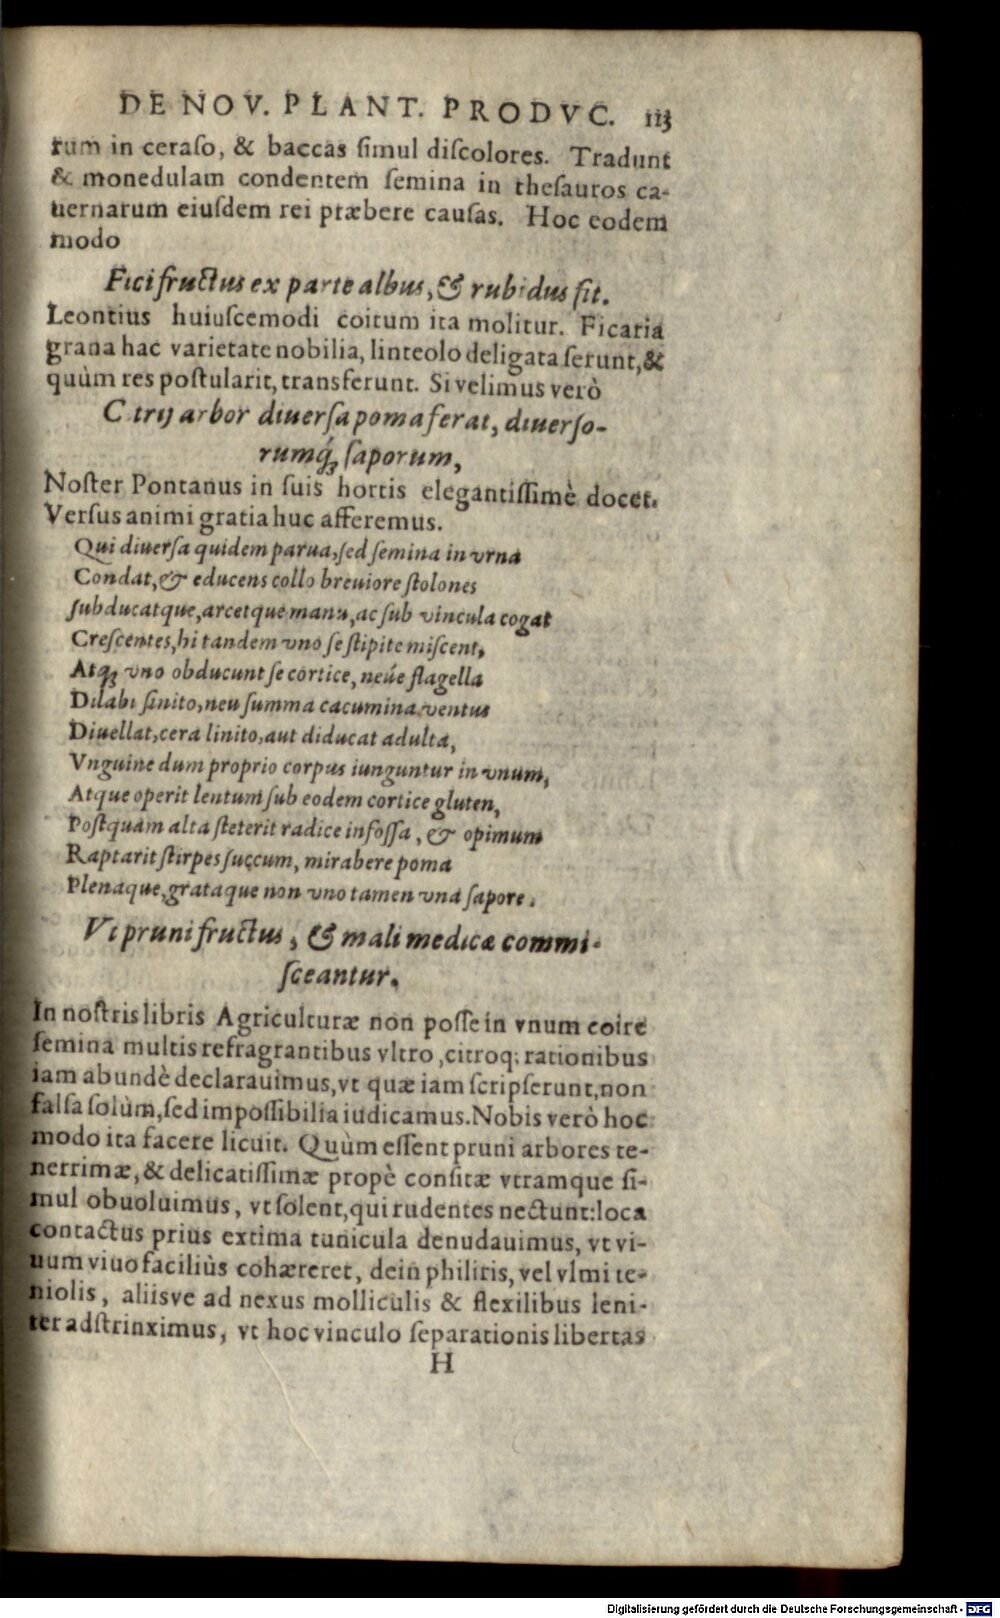 DE NOV. PLANT. PRODVC. 113
rum in ceraſo, & baccas ſimul diſcolores. Tradunt
& monedulam condentem ſemina in theſauros ca-
uernarum eiuſdem rei præbere cauſas. Hoc eodem
modo
Fici fructus ex parte albus, & rubidus fit.
Leontius huiuſcemodi coitum ita molitur. Ficaria
grana hac varietate nobilia, linteolo deligata ſerunt, &
quùm res poſtularit, transferunt. Si velimus verò
C trij arbor diuerſa poma ferat, diuerſo-
rumq́; ſaporum,
Noſter Pontanus in ſuis hortis elegantiſſimè docet.
Verſus animi gratia huc afferemus.
Qui diuerſa quidem parua, ſed ſemina in vrna
Condat, & educens collo breuiore ſtolones
ſubducatque, arcetque manu, ac ſub vincula cogat
Creſcentes, hi tandem vno ſe ſtipite miſcent,
Atq; vno obducunt ſe cortice, neúe flagella
Dilabi ſinito, neu ſumma cacumina ventus
Diuellat, cera linito, aut diducat adulta,
Vnguine dum proprio corpus iunguntur in vnum,
Atque operit lentum ſub eodem cortice gluten,
Poſtquam alta ſteterit radice infoſſa, & opimum
Raptarit ſtirpes ſuccum, mirabere poma
Plenaque, grataque non vno tamen vna ſapore.
Vt pruni fructus, & mali medicæ commi-
ſceantur.
In noſtris libris Agriculturæ non poſſe in vnum coire
ſemina multis refragrantibus vltro, citroq; rationibus
iam abundè declarauimus, vt quæ iam ſcripſerunt, non
falſa ſolùm, ſed impoſſibilia iudicamus. Nobis verò hoc
modo ita facere licuit. Quùm eſſent pruni arbores te-
nerrimæ, & delicatiſſimæ propè conſitæ vtramque ſi-
mul obuoluimus, vt ſolent, qui rudentes nectunt: loca
contactus prius extima tunicula denudauimus, vt vi-
uum viuo faciliùs cohæreret, dein philiris, vel vlmi te-
niolis, aliisve ad nexus molliculis & flexilibus leni-
ter adſtrinximus, vt hoc vinculo ſeparationis libertas
H
Digitalisierung gefördert durch die Deutsche Forschungsgemeinschaft - DFG